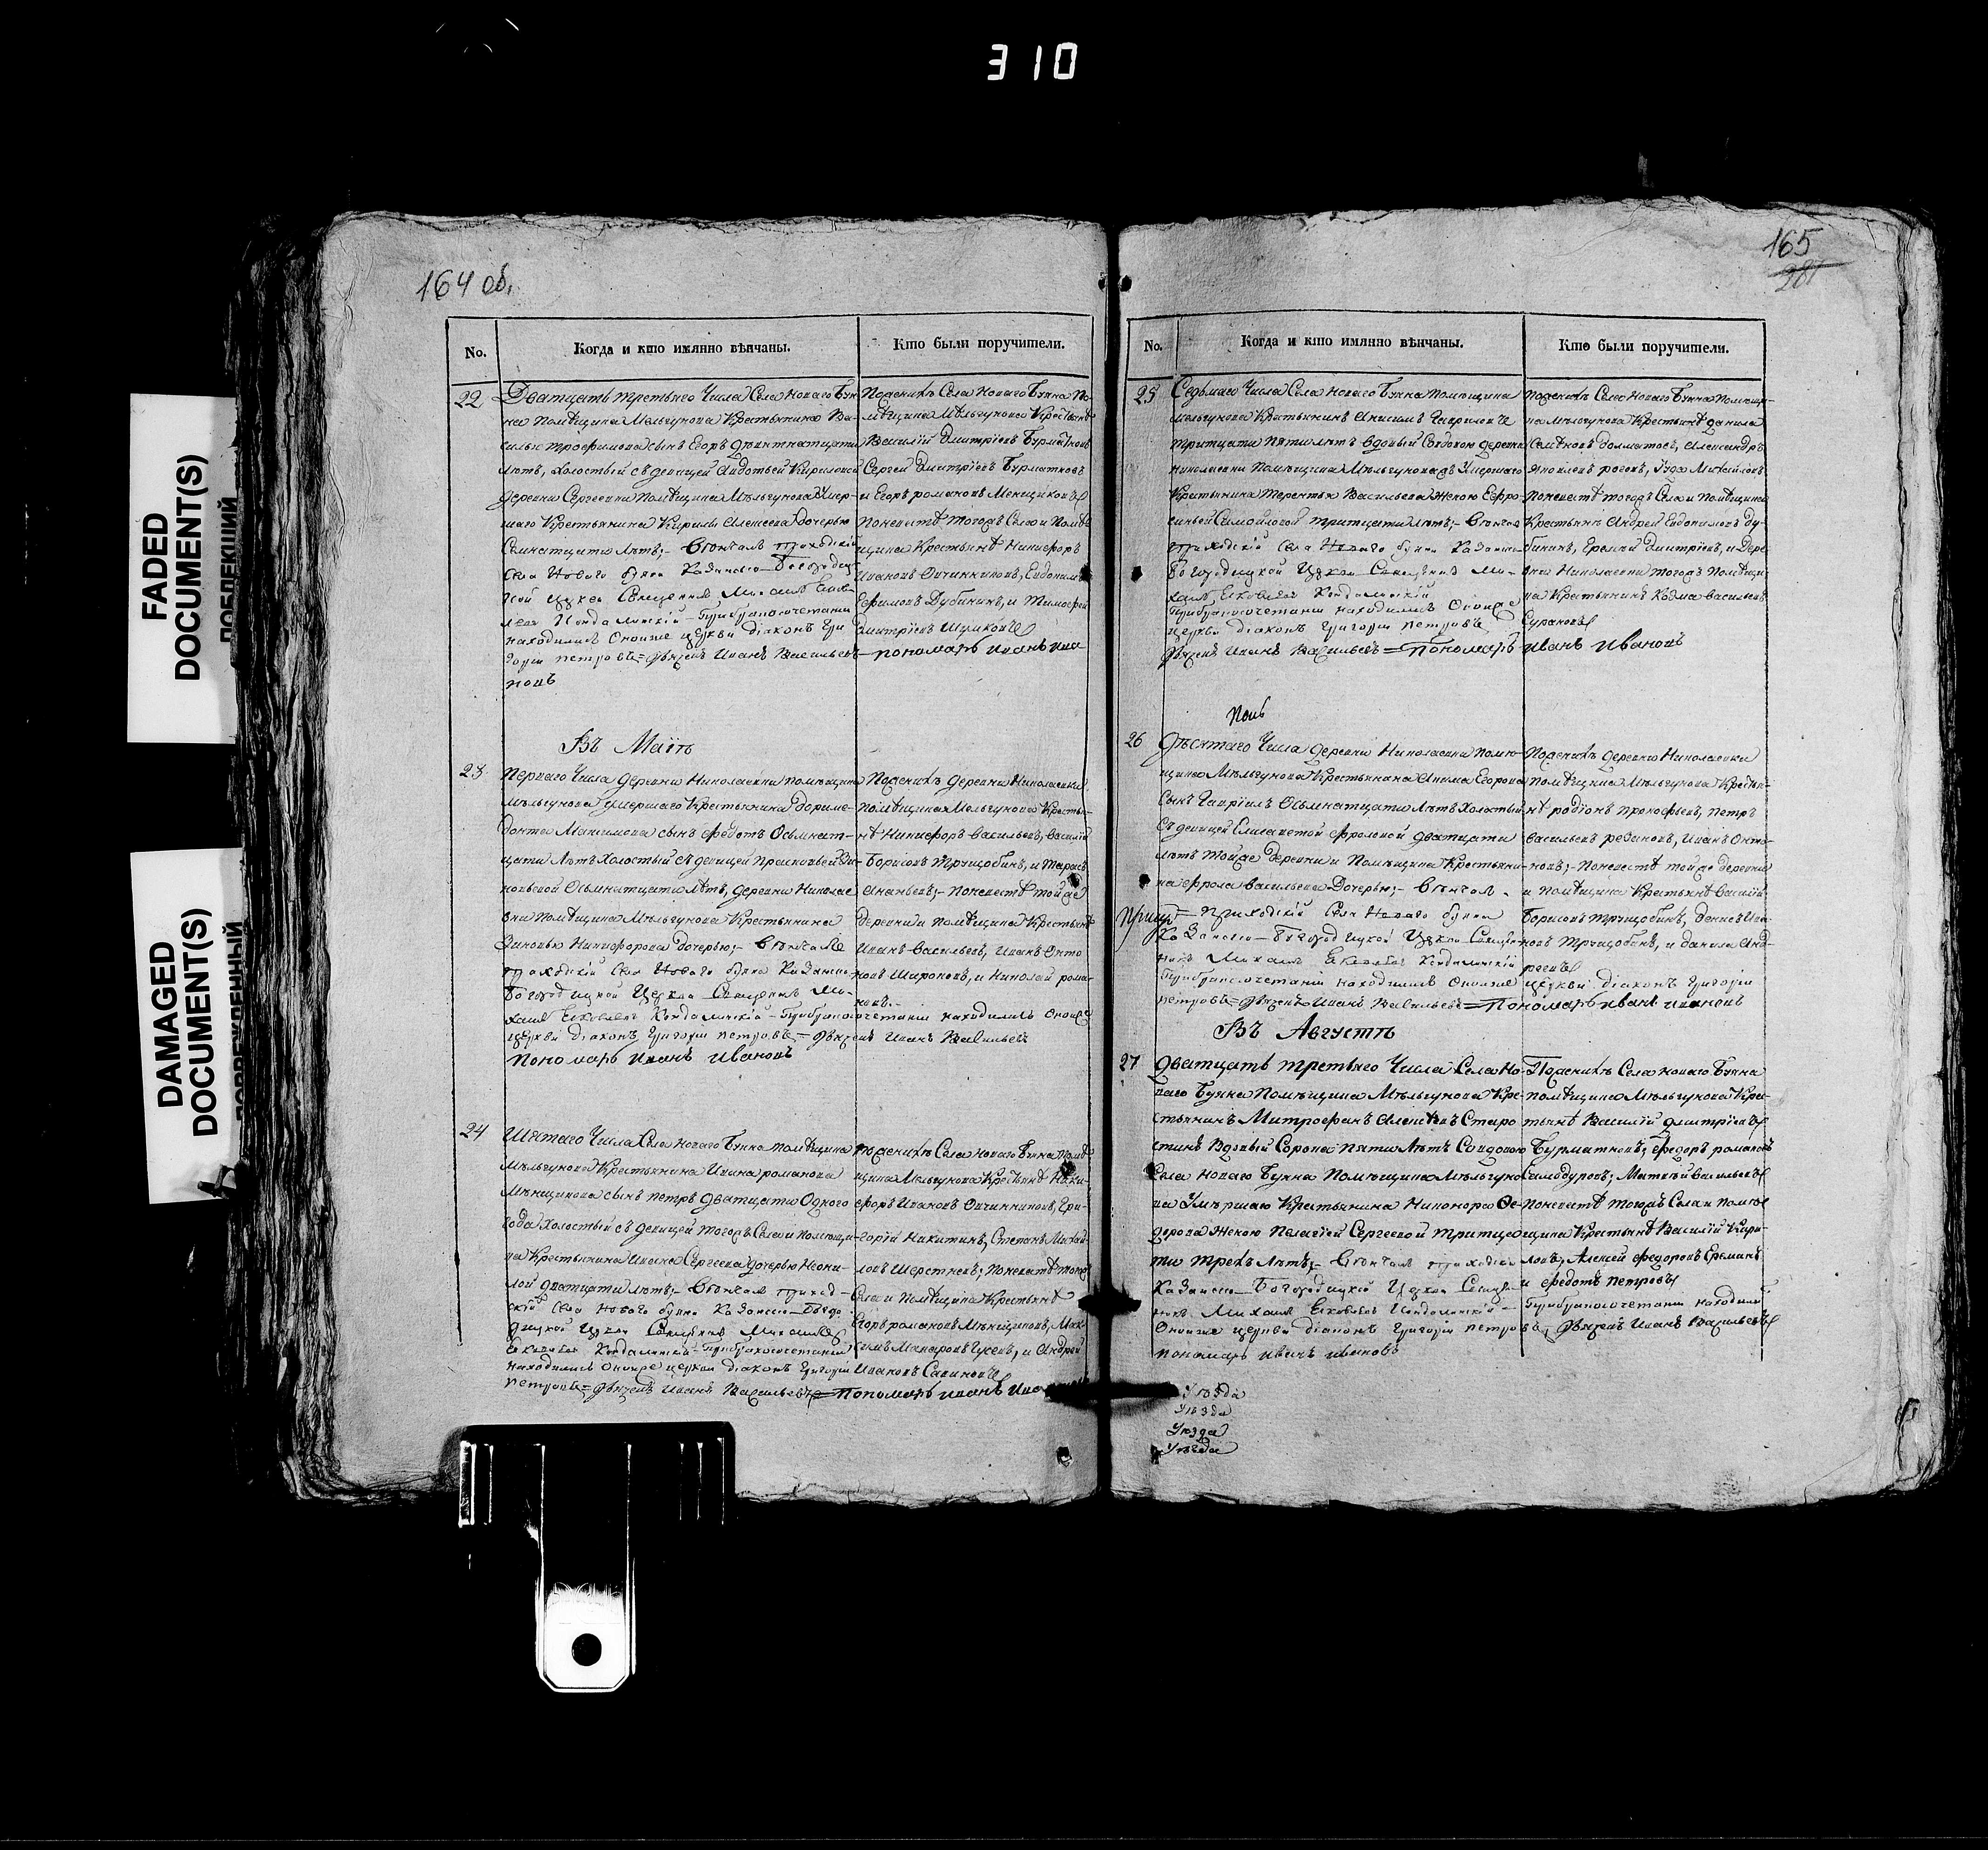 310
FADED
DOCUMENT(S)
DAMAGED
DOCUMENT(S)
ПОВРЕЖДЕННЫЙ
164 об.
No. Когда и кто имянно вѣнчаны. Кто были поручители.
22 Дватцать третьяго Числа Села Новаго Буя-
на Помѣщика Мельгунова Крестьянина Ва-
силья трофимова сынъ Егоръ Девятнатцати
лѣтъ, холостый съ девицей Авдотьей Кириловой
деревни Сергеевки помѣщика Мѣльгунова Умер-
шаго Крестьянина Кирилы Алексеева дочерью
Семнатцати лѣтъ;- Венчалъ приходскій
села Новаго буяна Казанско-Богородиц-
кой церкви Священникъ Михаилъ Еков-
левъ Кондалинскій - При бракосочетании
находились Оноиже церкви діаконъ Гри
горій петровъ = Дьячекъ Иванъ Васильевъ - пономарь иванъ ива
новъ
По женихѣ Села Новаго Буяна По-
мѣщика Мѣльгунова Крестьянѣ
Василій Дмитріевъ Бурматновъ
Сергей Дмитріевъ Бурматновъ
и Егоръ романовъ Менщиковъ
По невестѣ тогожъ Села и Помѣ-
щика Крестьянѣ Никифоръ
Ивановъ Овчинниковъ, Евдокимъ
Ефимовъ Дубининъ, и Тимофей
Дмитріевъ Шумковъ
Въ Маіѣ
23 Перваго Числа деревни Николаевки помѣщика
Мѣльгунова умершаго Крестьянина Дориме-
донта Максимова сынъ Федотъ Осьмнат-
цати лѣтъ Холостый съ девицей прасковьей Зи-
новьевой Осьмнатцати лѣтъ, деревни Николае
вки помѣщика Мѣльгунова Крестьянина
Зиновью Никифорова дочерью;- Венчалъ
приходскій села Новаго буяна Казанско-
Богородицкой Церкви Священникъ Ми-
хаилъ Ековлевъ Кондалинскій - При бракосочетании находились Оноиже
церкви діаконъ Григорій петровъ = Дьячекъ Иванъ Васильевъ
Пономарь Иванъ Ивановъ
По женихѣ деревни Николаевки
помѣщика Мѣльгунова Крестья-
нѣ Никифоръ Васильевъ, Василій
Борисовъ Трущобинъ, и Тарасъ
Ананьевъ;- По невестѣ той же
деревни и помѣщика Крестьянѣ
Иванъ Васильевъ, Иванъ Анто
новъ Широковъ, и Николай рома-
новъ.-
24 Шестаго Числа Села Новаго Буяна помѣщика
Мѣльгунова Крестьянина Ивана романова
Мѣнщикова сынъ петръ дватцати Одного
года холостый съ девицей тогожъ Села и помѣщи-
ка Крестьянина Ивана Сергеева дочерью Неони-
лой дватцати лѣтъ;- Венчалъ приход-
скій села Новаго буяна Казанско-Богоро
дицкой Церкви Священникъ Михаилъ
Ековлевъ Кондалинскій - При бракосочетании
находились Оноиже церкви діаконъ Григорій
петровъ = Дьячекъ Иванъ Васильевъ = Пономарь иванъ
По женихѣ Села Новаго Буяна Помѣ-
щика Мѣльгунова Крестьянѣ Ники-
форъ Ивановъ Овчинниковъ, Гри-
горій Никитинъ, Степанъ Михай-
ловъ Шерстневъ, По невѣстѣ тогожъ
Села и Помѣщика Крестьянѣ
Егоръ романовъ Мѣнщиковъ, Мак-
симъ Макаровъ Гусевъ, и Андрей
Ивановъ Савиновъ
165
No. Когда и кто имянно вѣнчаны. Кто были поручители.
25 Седьмаго Числа Села Новаго Буяна помѣщика
Мѣльгунова Крестьянинъ Анисимъ Гавриловъ
тритцати пяти лѣтъ вдовый Совдовою деревни
Николаевки помѣщика Мѣльгунова Умершаго
Крестьянина Терентья Васильева женою Ефро-
синьей Самойловой тритцати лѣтъ;- Венчал
приходскій Села Новаго буяна Казанско-
Богородицкой Церкви Священникъ Ми-
хаилъ Ековлевъ Кондалинскій
При бракосочетании находились Оноиже
церкви діаконъ Григорій петровъ
Дьячекъ Иванъ Васильевъ = Пономарь иванъ Ивановъ
По женихѣ Села Новаго Буяна помѣщи-
ка Мѣльгунова Крестьянѣ данила
Семеновъ Долматовъ, Александръ
Яковлевъ роговъ, Гуда Михайловъ
По невестѣ тогожъ Села и помѣщика
Крестьянѣ Андрей Евдокимовъ ду-
бининъ, Еремей Дмитріевъ, и дере
вни Николаевки тогожъ помѣщи-
ка Крестьянинъ Козма Васильевъ
Сурановъ
26 Десятаго Числа деревни Николаевки помѣ-
щика Мѣльгунова Крестьянина Акима Егорова
сынъ Гавріилъ Осьмнатцати лѣтъ холостый
съ девицей Елисаветой Фроловой дватцати
лѣтъ той же деревни и помѣщика Крестьяни-
на Фрола Васильева дочерью;- Венчал -
приходскій Села Новаго буяна
Казанско-Богородицкой Церкви Священ-
никъ Михаилъ Ековлевъ Кондалинскій
При бракосочетании находились Оноиже церкви діаконъ Григорій
петровъ = Дьячекъ Иванъ Васильевъ = Пономарь иванъ ивановъ
По женихѣ деревни Николаевки
помѣщика Мѣльгунова Крестья-
нѣ родіонъ прокофьевъ, петръ
Васильевъ резановъ, Иванъ Анто-
новъ;- По невестѣ той же деревни
и помѣщика Крестьянѣ Василій
Борисовъ трущобинъ, денисъ Ива
новъ трущобинъ, и данила Анд-
реевъ
Въ Августѣ
27 Дватцать третьяго Числа Села Но-
ваго Буяна Помѣщика Мѣльгунова Кре-
стьянинъ Митрофанъ Алексеевъ Старо
стинъ Вдовый Сорока пяти лѣтъ Совдовою
Села Новаго Буяна Помѣщика Мѣльгуно
ва Умершаго Крестьянина Никонора Фе-
дорова женою Пелагіей Сергеевой тритцо
ти трехъ лѣтъ;- Венчал приходскій
Казанско-Богородицкой Церкви Священ
никъ Михаилъ Ековлевъ Кондалинскій -
Оноиже церкви діаконъ Григорій петровъ, Дьячекъ Иванъ Васильевъ
пономарь иванъ ивановъ
По женихѣ Села Новаго Буяна
помѣщика Мѣльгунова Кре-
стьянѣ Василій дмитріевъ
Бурматновъ, Федоръ романовъ
Самодуровъ, Матвѣй Васильевъ
По невестѣ тогожъ Села и помѣ
щика Крестьянѣ Василій Кири-
ловъ, Алексей Федоровъ Ереминъ
и Федотъ петровъ
При бракосочетании находились
Уѣзда
Уѣзда
Уѣзда
Уѣзда